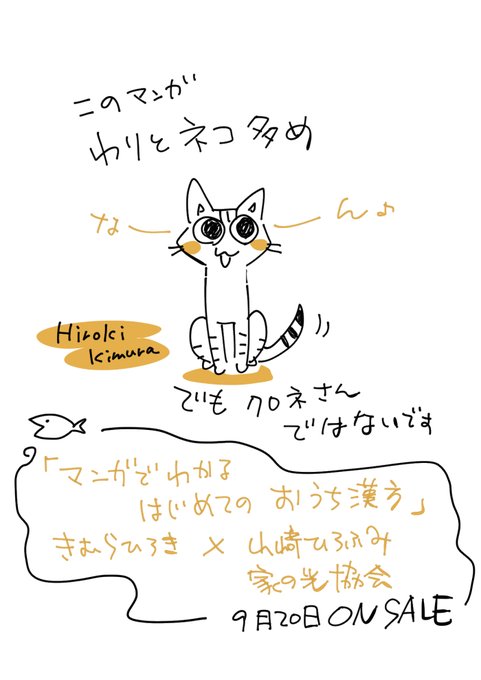 このマンガ
わりとネコ多め
な
ん♪
Hiroki
Kimura
でも クロネさん
ではないです
「マンガでわかる
はじめての おうち漢方」
きむらひろき × 山崎ひろふみ
家の光協会
9月20日 ON SALE